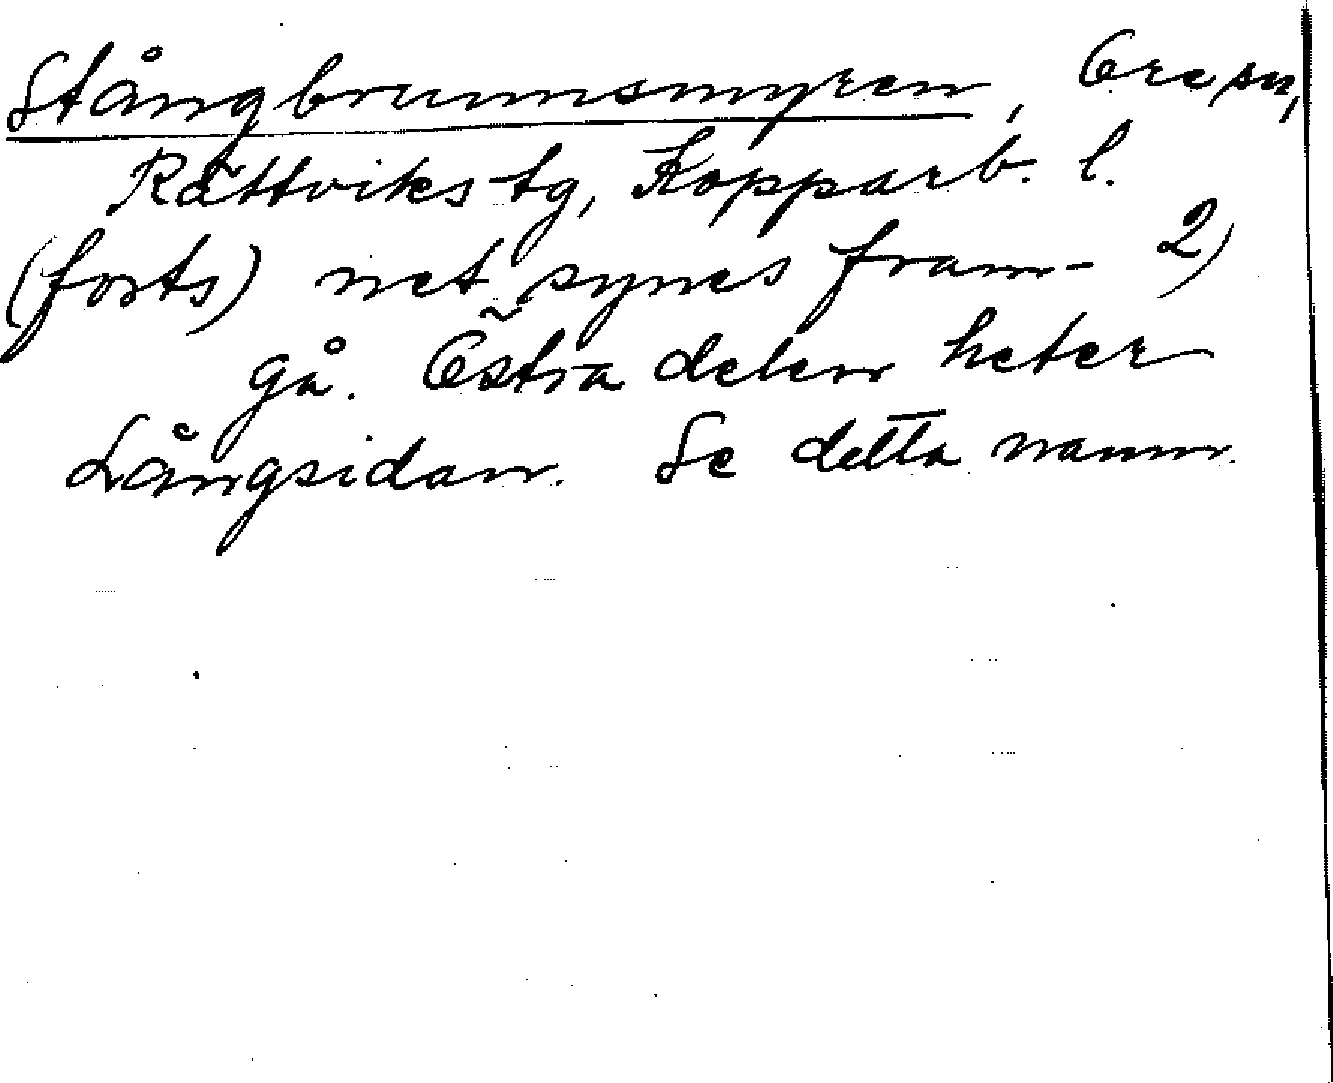 Stångbrunnsmyren, Ore sn,
Rättviks tg, Kopparb. l.
(forts) net synes fram- 2)
gå. Östra delen heter
Långsidan. Se detta namn.